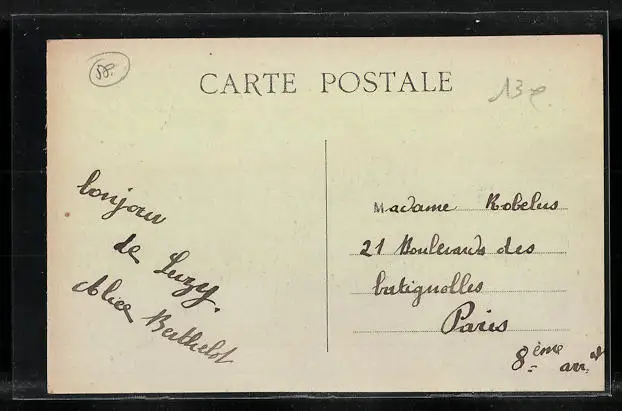 58.
CARTE POSTALE
13e
bonjour
de Luzy.
Alice Berthelot
Madame Robelus
21 Boulevards des
batignolles
Paris
8ème arr.dt